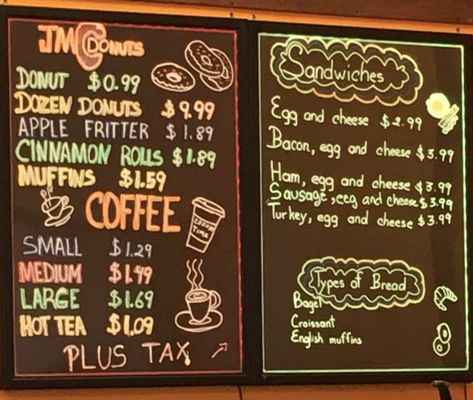 JMC DONUTS
DONUT $0.99
DOZEN DONUTS $9.99
APPLE FRITTER $1.89
CINNAMON ROLLS $1.89
MUFFINS $1.59
COFFEE
COFFEE TIME
SMALL $1.29
MEDIUM $1.49
LARGE $1.69
HOT TEA $1.09
PLUS TAX
Sandwiches
Egg and cheese $2.99
Bacon, egg and cheese $3.99
Ham, egg and cheese $3.99
Sausage, eeg and cheese $3.99
Turkey, egg and cheese $3.99
Types of Bread
Bagel
Croissant
English muffins